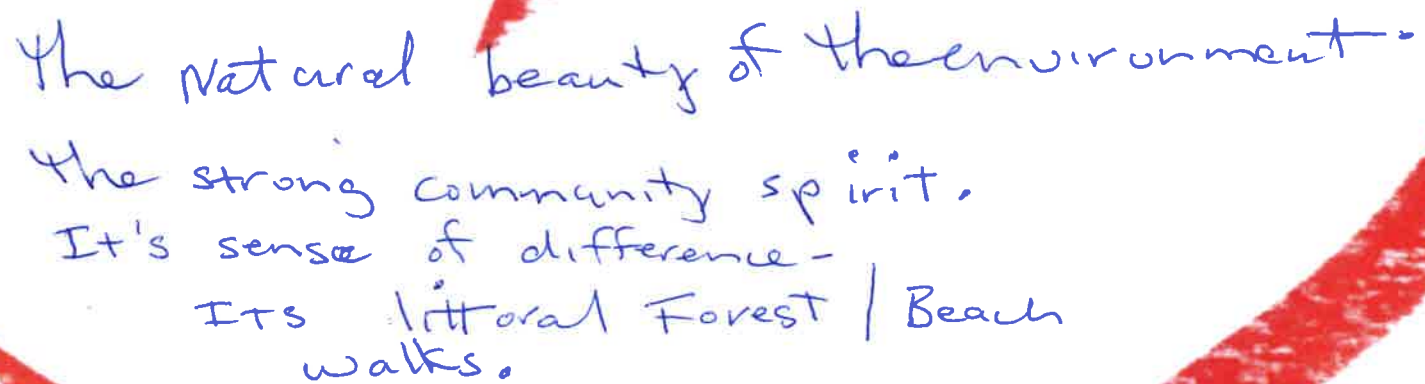 The Natural beauty of the environment.
The strong community spirit.
It's sense of difference-
Its littoral Forest / Beach
walks.